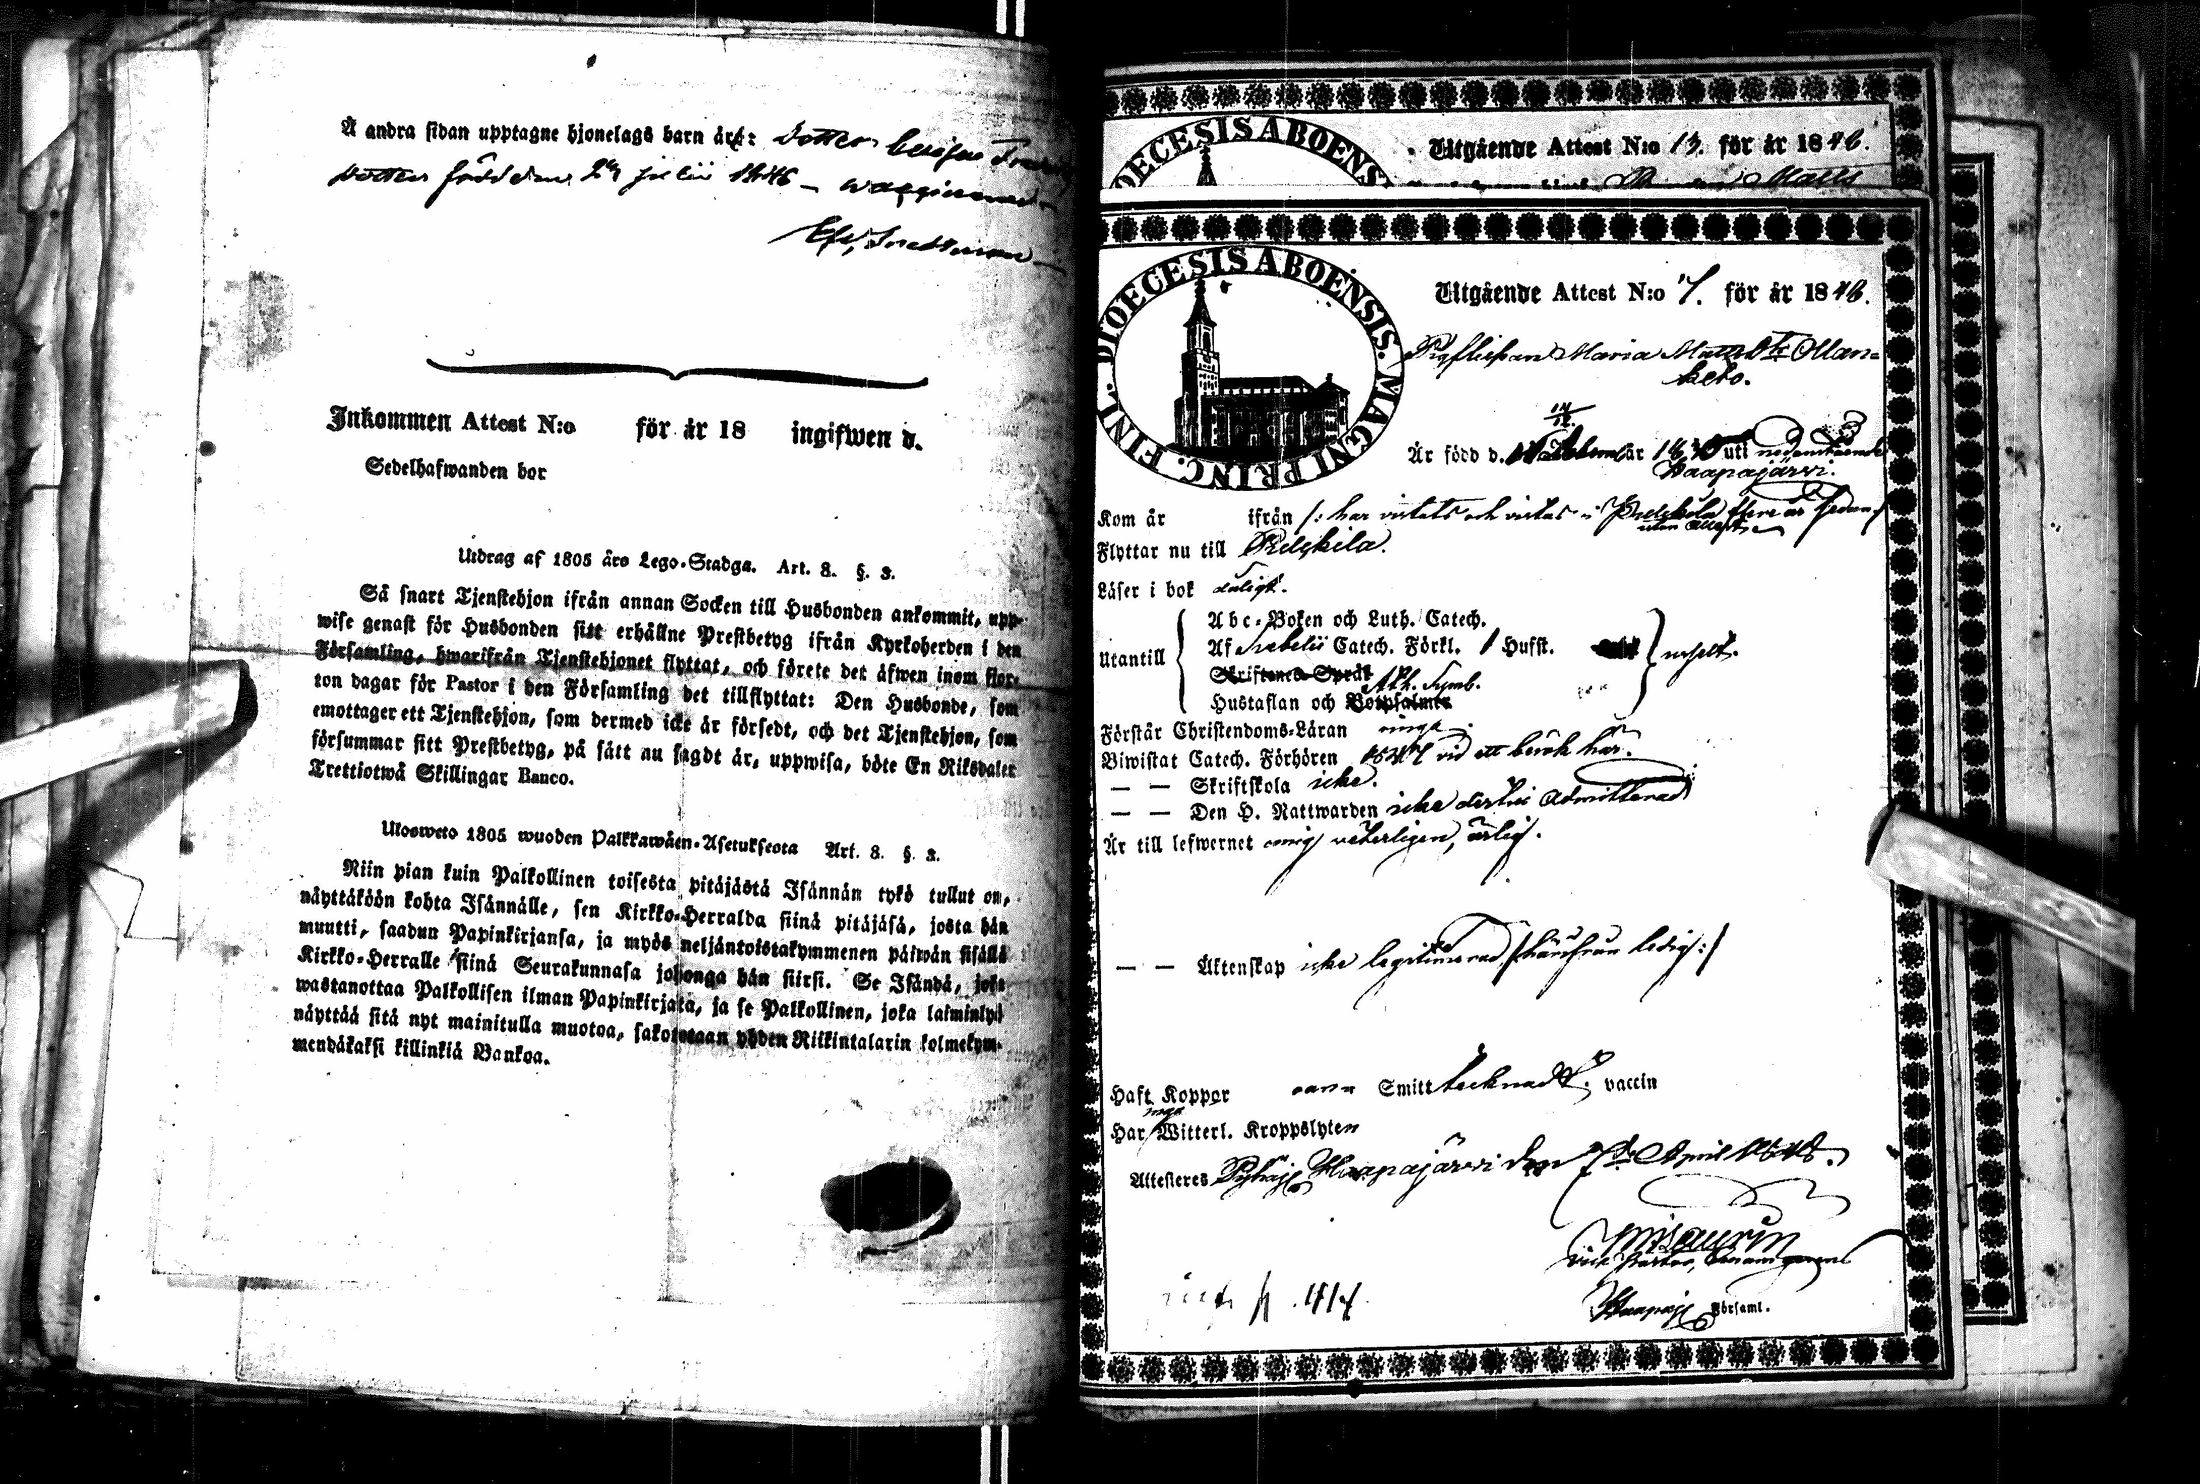 Å andra sidan upptagne hjonelags barn äro: Dotter
dotter född den 24 julii 1846 —
Inkommen Attest N:o för år 18 ingifwen d.
Sedelhafwanden bor
Utdrag af 1805 års Lego-Stadga. Art. 8. §. 3.
Så snart Tjenstehjon ifrån annan Socken till Husbonden ankommit, upp-
wise genast för Husbonden sitt erhållne Prestbetyg ifrån Kyrkoherden i den
Församling, hwarifrån Tjenstehjonet flyttat, och förete det äfwen inom fjor-
ton dagar för Pastor i den Församling det tillflyttat: Den Husbonde, som
emottager ett Tjenstehjon, som dermed icke är försedt, och det Tjenstehjon, som
försummar sitt Prestbetyg, på sätt nu sagdt är, uppwisa, böte En Riksdaler
Trettiotwå Skillingar Banco.
Ulosweto 1805 wuoden Palkkawäen-Asetuksesta Art. 8. §. 3.
Niin pian kuin Palkollinen toisesta pitäjästä Isännän tykö tullut on,
näyttäköön kohta Isännälle, sen Kirkko-Herralda siinä pitäjäsä, josta hän
muutti, saadun Papinkirjansa, ja myös neljäntoistakymmenen päiwän sisällä
Kirkko-Herralle siinä Seurakunnasa johonga hän siirsi. Se Isändä, joka
wastanottaa Palkollisen ilman Papinkirjata, ja se Palkollinen, joka laiminlyö
näyttää sitä nyt mainitulla muotoa, sakotetaan yhden Riikintalarin kolmekym-
mendäkaksi killinkiä Bankoa.
DIOECESIS ABOENSIS
Utgående Attest N:o 13. för år 1846.
Matts
DIOECESIS ABOENSIS. MAGNI PRINC. FINL.
Utgående Attest N:o 7. för år 1848.
Pigflickan Maria Mattsdtr Ollan-
keto.
Är född d. år 18 uti nedanstående
Haapajärvi.
Kom år ifrån /: har vistats och vistas i Pulkkila flere år sedan
utan attest
Flyttar nu till Pulkkila.
Läser i bok dåligt.
Abc-Boken och Luth. Catech.
Utantill Af Svebelii Catech. Förkl. 1 Hufst. uselt.
Skriftenes Språk Ath. Symb.
Hustaflan och Botpsalmer
Förstår Christendoms-Läran inga
Biwistat Catech. Förhören 1847 vid ett besök här.
— — Skriftskola icke.
— — Den H. Nattwarden icke dertill admitterad
Är till lefwernet mig veterligen, ärlig.
— — Äktenskap icke legitimerad /: härifrån ledig :/
Haft Koppor Smitt vaccin
Har inga Witterl. Kroppslyten
Attesteres Pyhäj. Haapajärvi den 7de April 1848.
Vice Pastor,
Haapaj. Församl.
414.